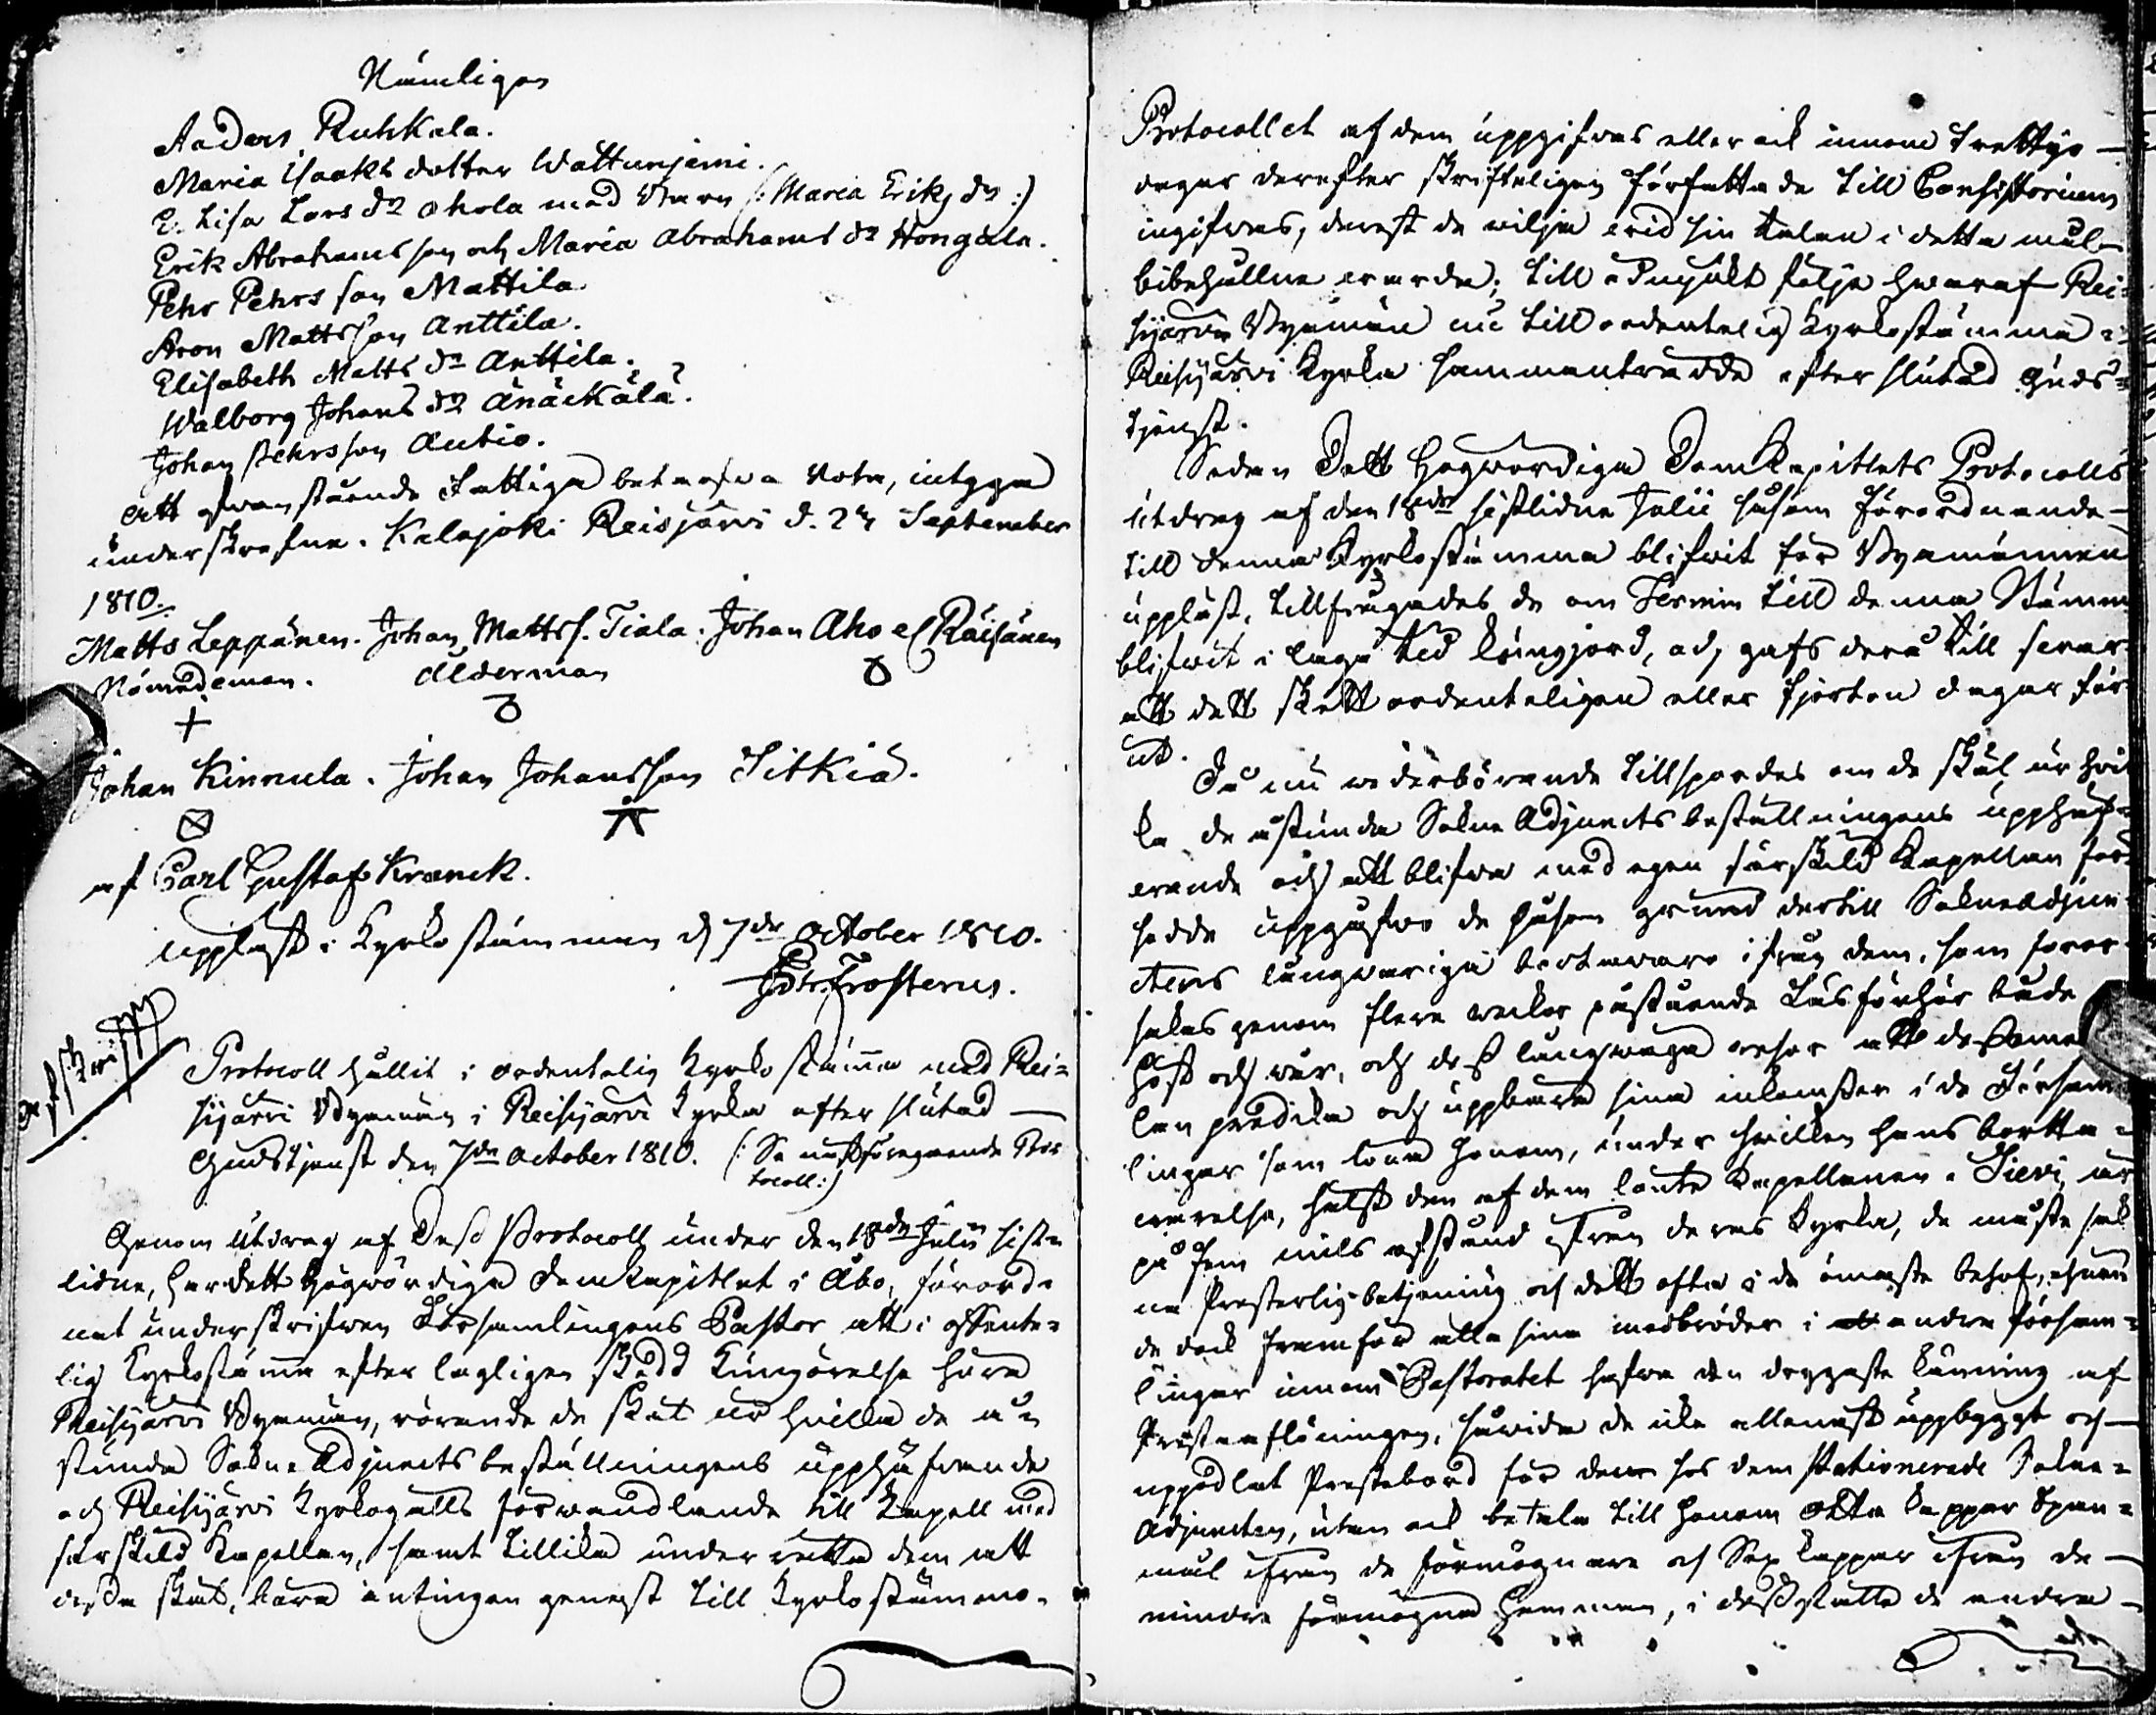 Nämligen
Anders Ruhkala.
Maria Isaaks dotter Wattunjemi.
E. Lisa Lars dr Ahola med Barn (: Maria Eriks dr :)
Erik Abrahamsson och Maria Abrahams dr Hongala.
Pehr Pehrs son Mattila.
Aron Mattsson Anttila.
Elisabeth Matts dr Anttila.
Walborg Johans dr Änäckälä.
Johan Pehrsson Autio.
Att ofvanstående Fattiga behöfva Rotar, intyga
underskrefne. Kalajoki Reisjärvi d. 24 September
1810.
Matts Leppänen. Johan Mattss. Tiala. Johan Aho el. Räisänen
Nämndeman. Ålderman
Johan Kinnula. Johan Johansson Sitkiä.
af Carl Gustaf Kranck.
Uppläst i Kyrkostämman d. 7de October 1810.
Joh. Frosterus.
Afskrift
Protocoll hållit i ordentelig Kyrkostämma med Rei=
sijärvi Byemän i Reisijärvi Kyrka efter slutad
Gudstjenst den 7de October 1810. (: Se nästföregående Pro=
tocoll :)
Genom Utdrag af Dess Protocoll under den 18de Julii sist=
lidne, har dett Högvördiga Domkapitlet i Åbo, förord=
nat underskrifven Församlingens Pastor att i offente=
lig Kyrkostämma efter lagligen skedd Kungörelse höra
Reisijärvi Byemän, rörande de skäl ur hvilka de å=
stunda Sokne Adjuncts beställningens upphäfvande
och Reisijärvi Kyrkogälls förvandlande till Kapell med
särskild Kapellan, samt tillika underrätta dem att
desse skäl, böra antingen genast till Kyrkostämmo=
Protocollet af dem uppgifvas eller ock innom trettyo
dagar derefter skrifteligen författade till Consistorium
ingifvas, derest de vilja vid sin talan i detta mål
bibehållne varda; till ödmjukt följe hvaraf Rei=
sijärvi Byemän nu till ordentelig Kyrkostämma i
Reisijärvi Kyrka sammanträdde efter slutad Guds=
tjenst.
Sedan Dett Högvördiga DomKapitlets Protocolls
Utdrag af den 18de sistlidne Julii såsom förordnande
till denna Kyrkostämma blifvit för Byemännen
uppläst, tillfrågades de om Termin till denna Stämma
blifvit i laga tid kungjord, och gafs dera till svar
att dett skett ordenteligen eller fjorton dagar för
ut.
Då nu vederbörande tillspordes om de skäl ur hvil
ka de åstunda Sokne Adjuncts beställningens upphäf=
vande och att blifva med egen särskild Kapellan för=
sedde uppgåfvo de såsom grund dertill Sokneadjun=
ctens långvariga bortovaro ifrån dem, som foror=
sakas genom flere veckor påstående Läsförhör både
höst och vår, och dess långväga resor att dessemel
lan predika och uppbära sina inkomster i de Försam=
lingar som löna honom, under hvilken hans bortta=
varelse, hälst den af dem lönte Kapellanen i Sievi är
på fem mils afstånd ifrån deras Kyrka, de måste sak
na Presterlig betjening och dett ofta i de ömaste behof, ehuru
de dock framför alla sina medbröder i andra försam=
lingar innom Pastoratet hafva den dryggaste känning af
Prestaflöningen, såvida de icke allenast uppbyggt och
uppodlat Prestebord för den hos dem stationerade Sokne=
Adjuncten, utan ock betala till honom otta kappar Span=
mål ifrån de förmögnare och Sex kappar ifrån de
mindre förmögna hemman, i desställe de andra